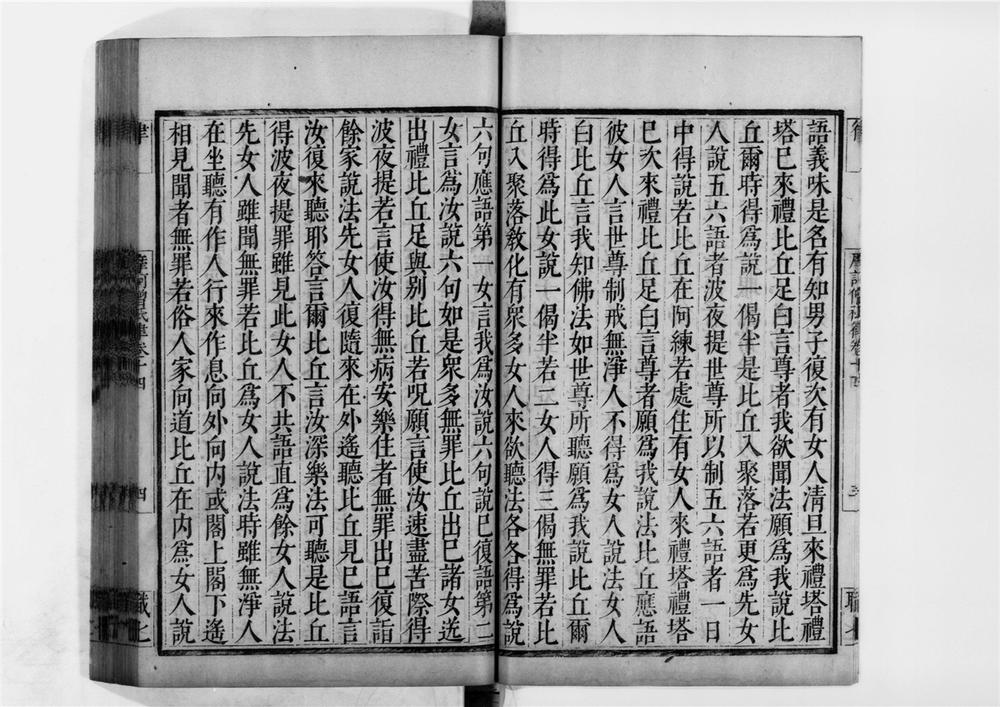 語義味是名有知男子復次有女人清旦來禮塔禮
塔已來禮比丘足白言尊者我欲聞法願爲我說比
丘爾時得爲說一偈半是比丘入聚落若更爲先女
人說五六語者波夜提世尊所以制五六語者一日
中得說若比丘在阿練若處住有女人來禮塔禮塔
已次來禮比丘足白言尊者願爲我說法比丘應語
彼女人言世尊制戒無淨人不得爲女人說法女人
白比丘言我知佛法如世尊所聽願爲我說比丘爾
時得爲此女說一偈半若二女人得三偈無罪若比
丘入聚落敎化有衆多女人來欲聽法各各得爲說
六句應語第一女言我爲汝說六句說已復語第二
女言爲汝說六句如是衆多無罪比丘出已諸女送
出禮比丘足與別比丘若呪願言使汝速盡苦際得
波夜提若言使汝得無病安樂住者無罪出已復詣
餘家說法先女人復隨來在外遙聽比丘見已語言
汝復來聽耶答言爾比丘言汝深樂法可聽是比丘
得波夜提罪雖見此女人不共語直爲餘女人說法
先女人雖聞無罪若比丘爲女人說法時雖無淨人
在坐聽有作人行來作息向外向內或閣上閣下遙
相見聞者無罪若俗人家向道比丘在內爲女人說
律
摩訶僧祇律卷十四
四
職七